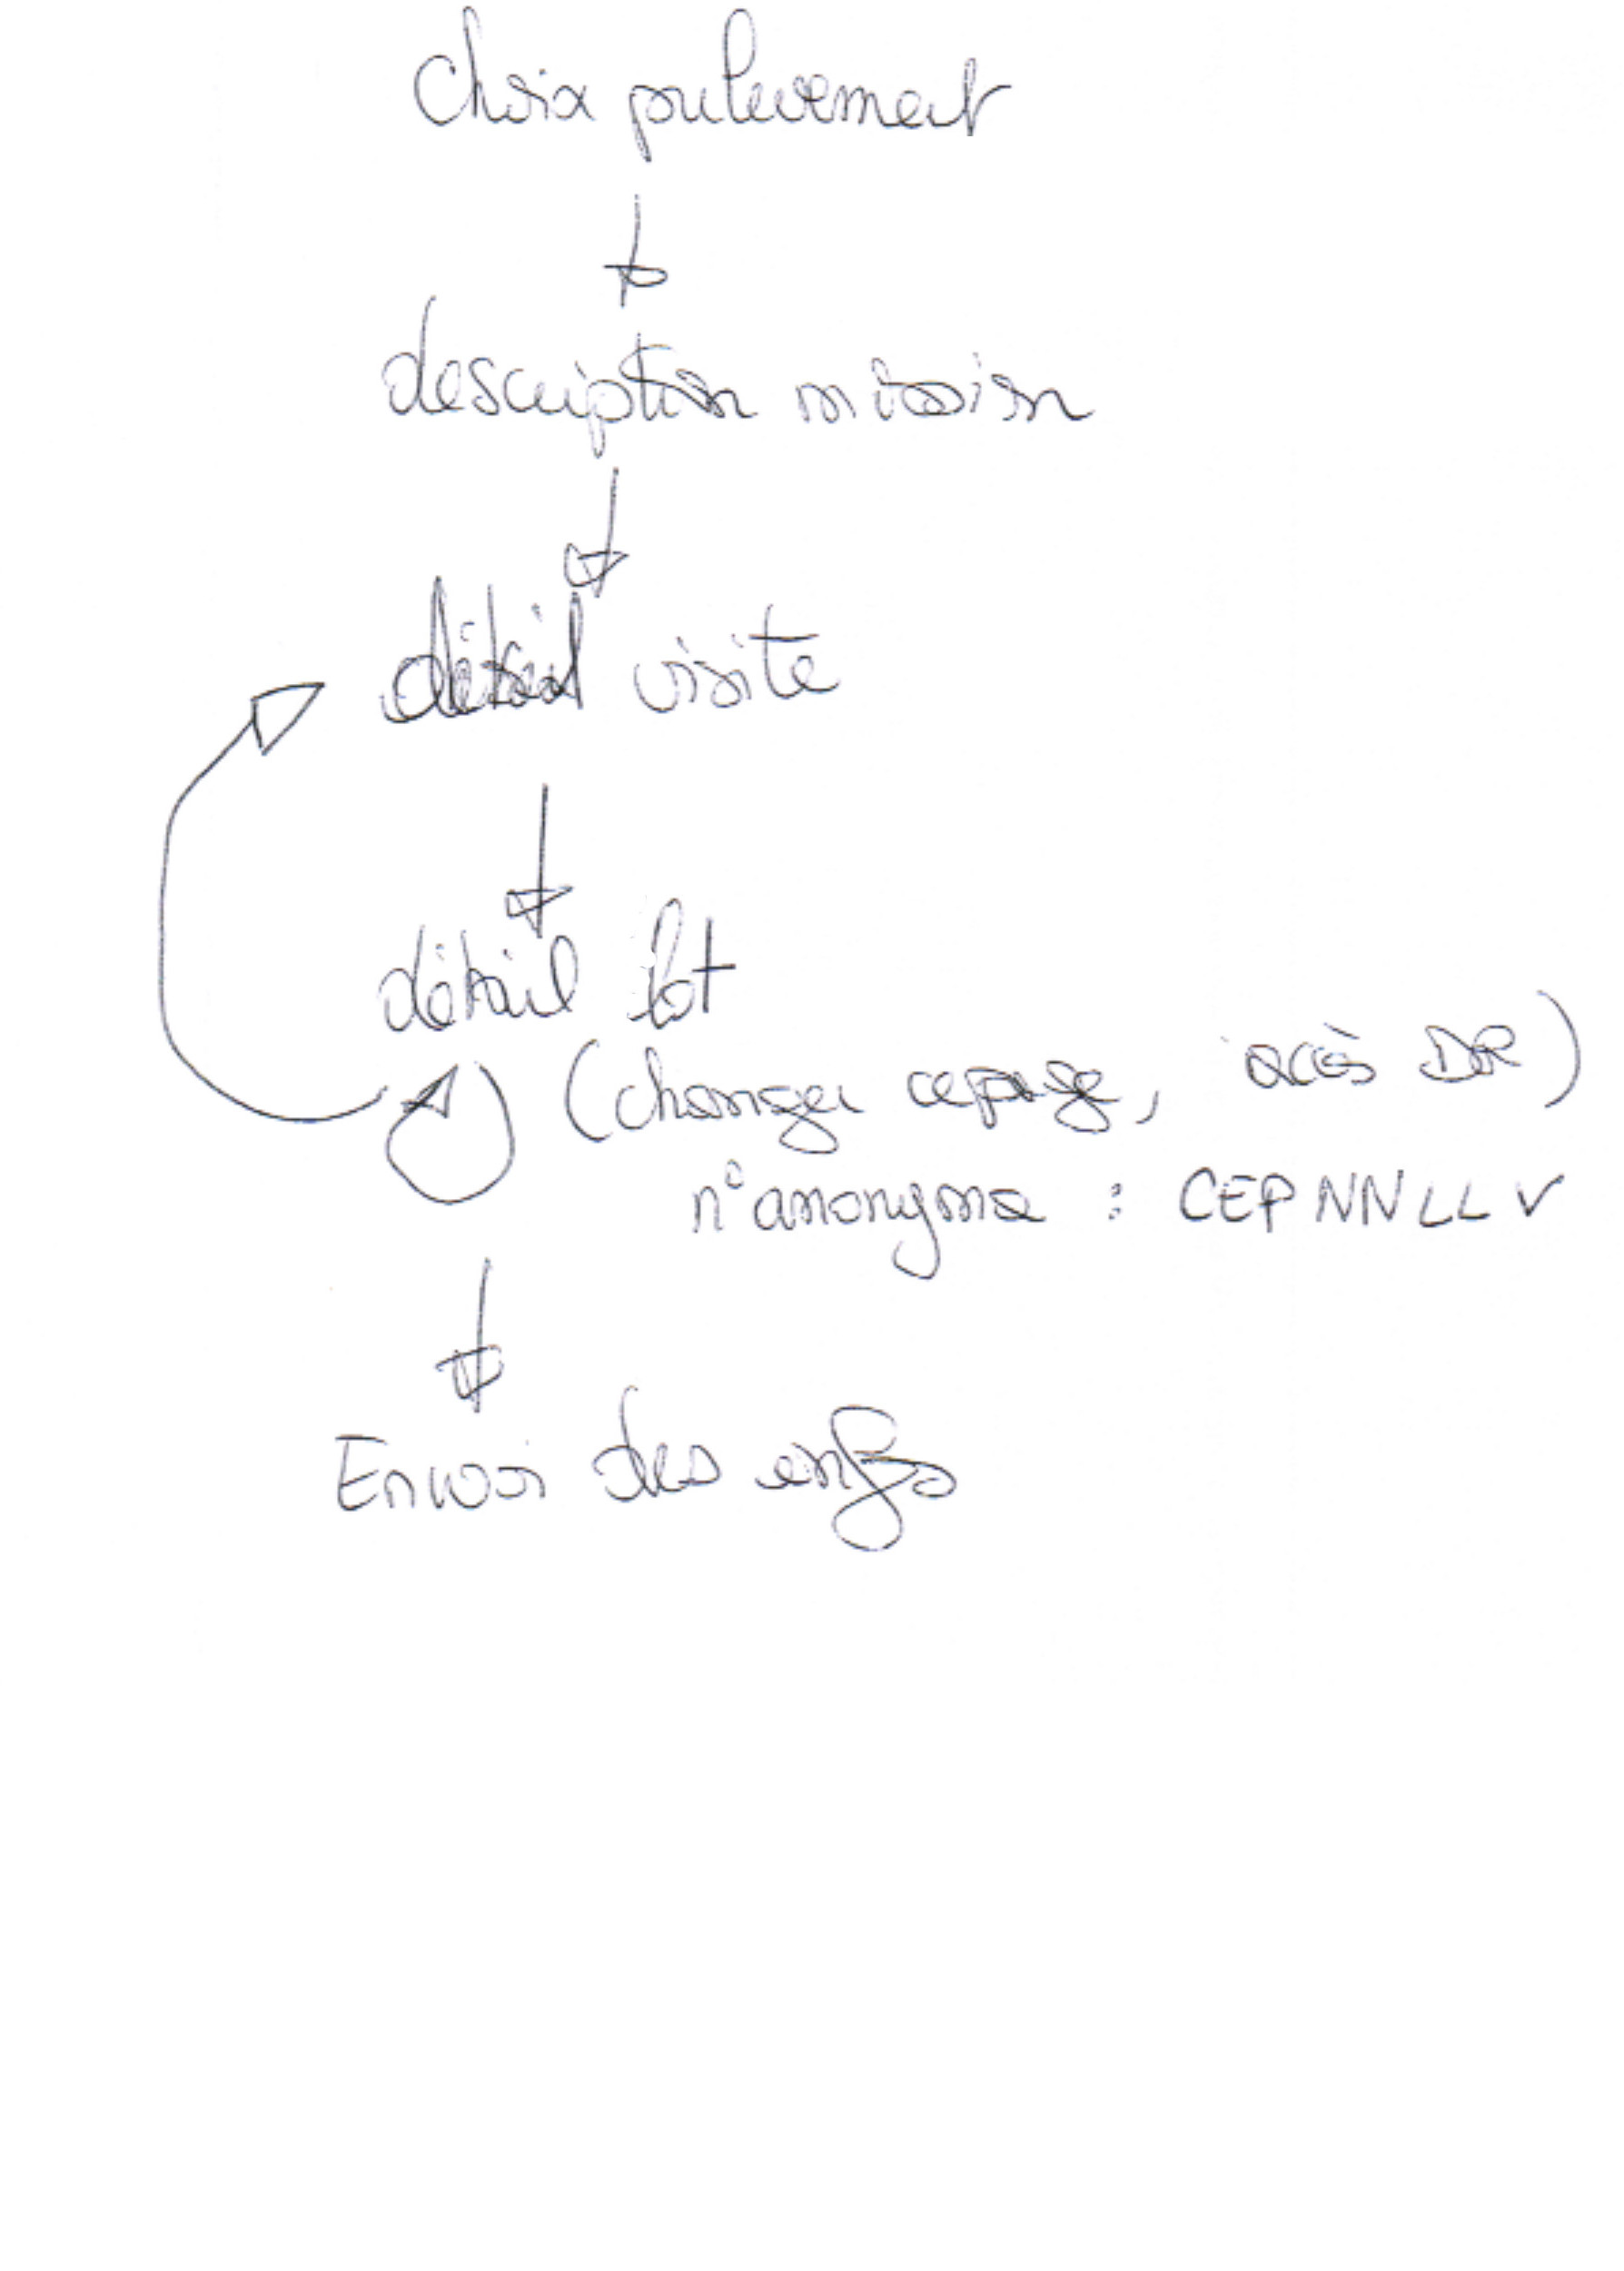 choix prelevement
description mission
détail visite
détail lot
(changer cepage, accès DR)
n° anonyme : CEPNNLLV
Envoi des infos